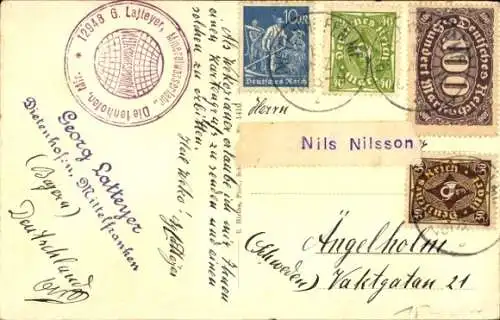 * 12948 G. Latteyer, Mineralwasserfabr. Dietenhofen, Mfr.
Georg Latteyer
Dietenhof:n. Mittelfranken
(Bayern)
Deutschland
Als Wekolaner erlaube ich mir Ihnen
einen Kartengruß zu senden und einen
solchen zu erbitten.
Heil Weko! GLatteyer
10M
Deutsches Reich
Deutsches Reich
100
Deutsches Reich
Hundert Mark
Deutsches Reich
Herrn
Nils Nilsson
Ängelholm
(Schweden) Vaktgatan 21